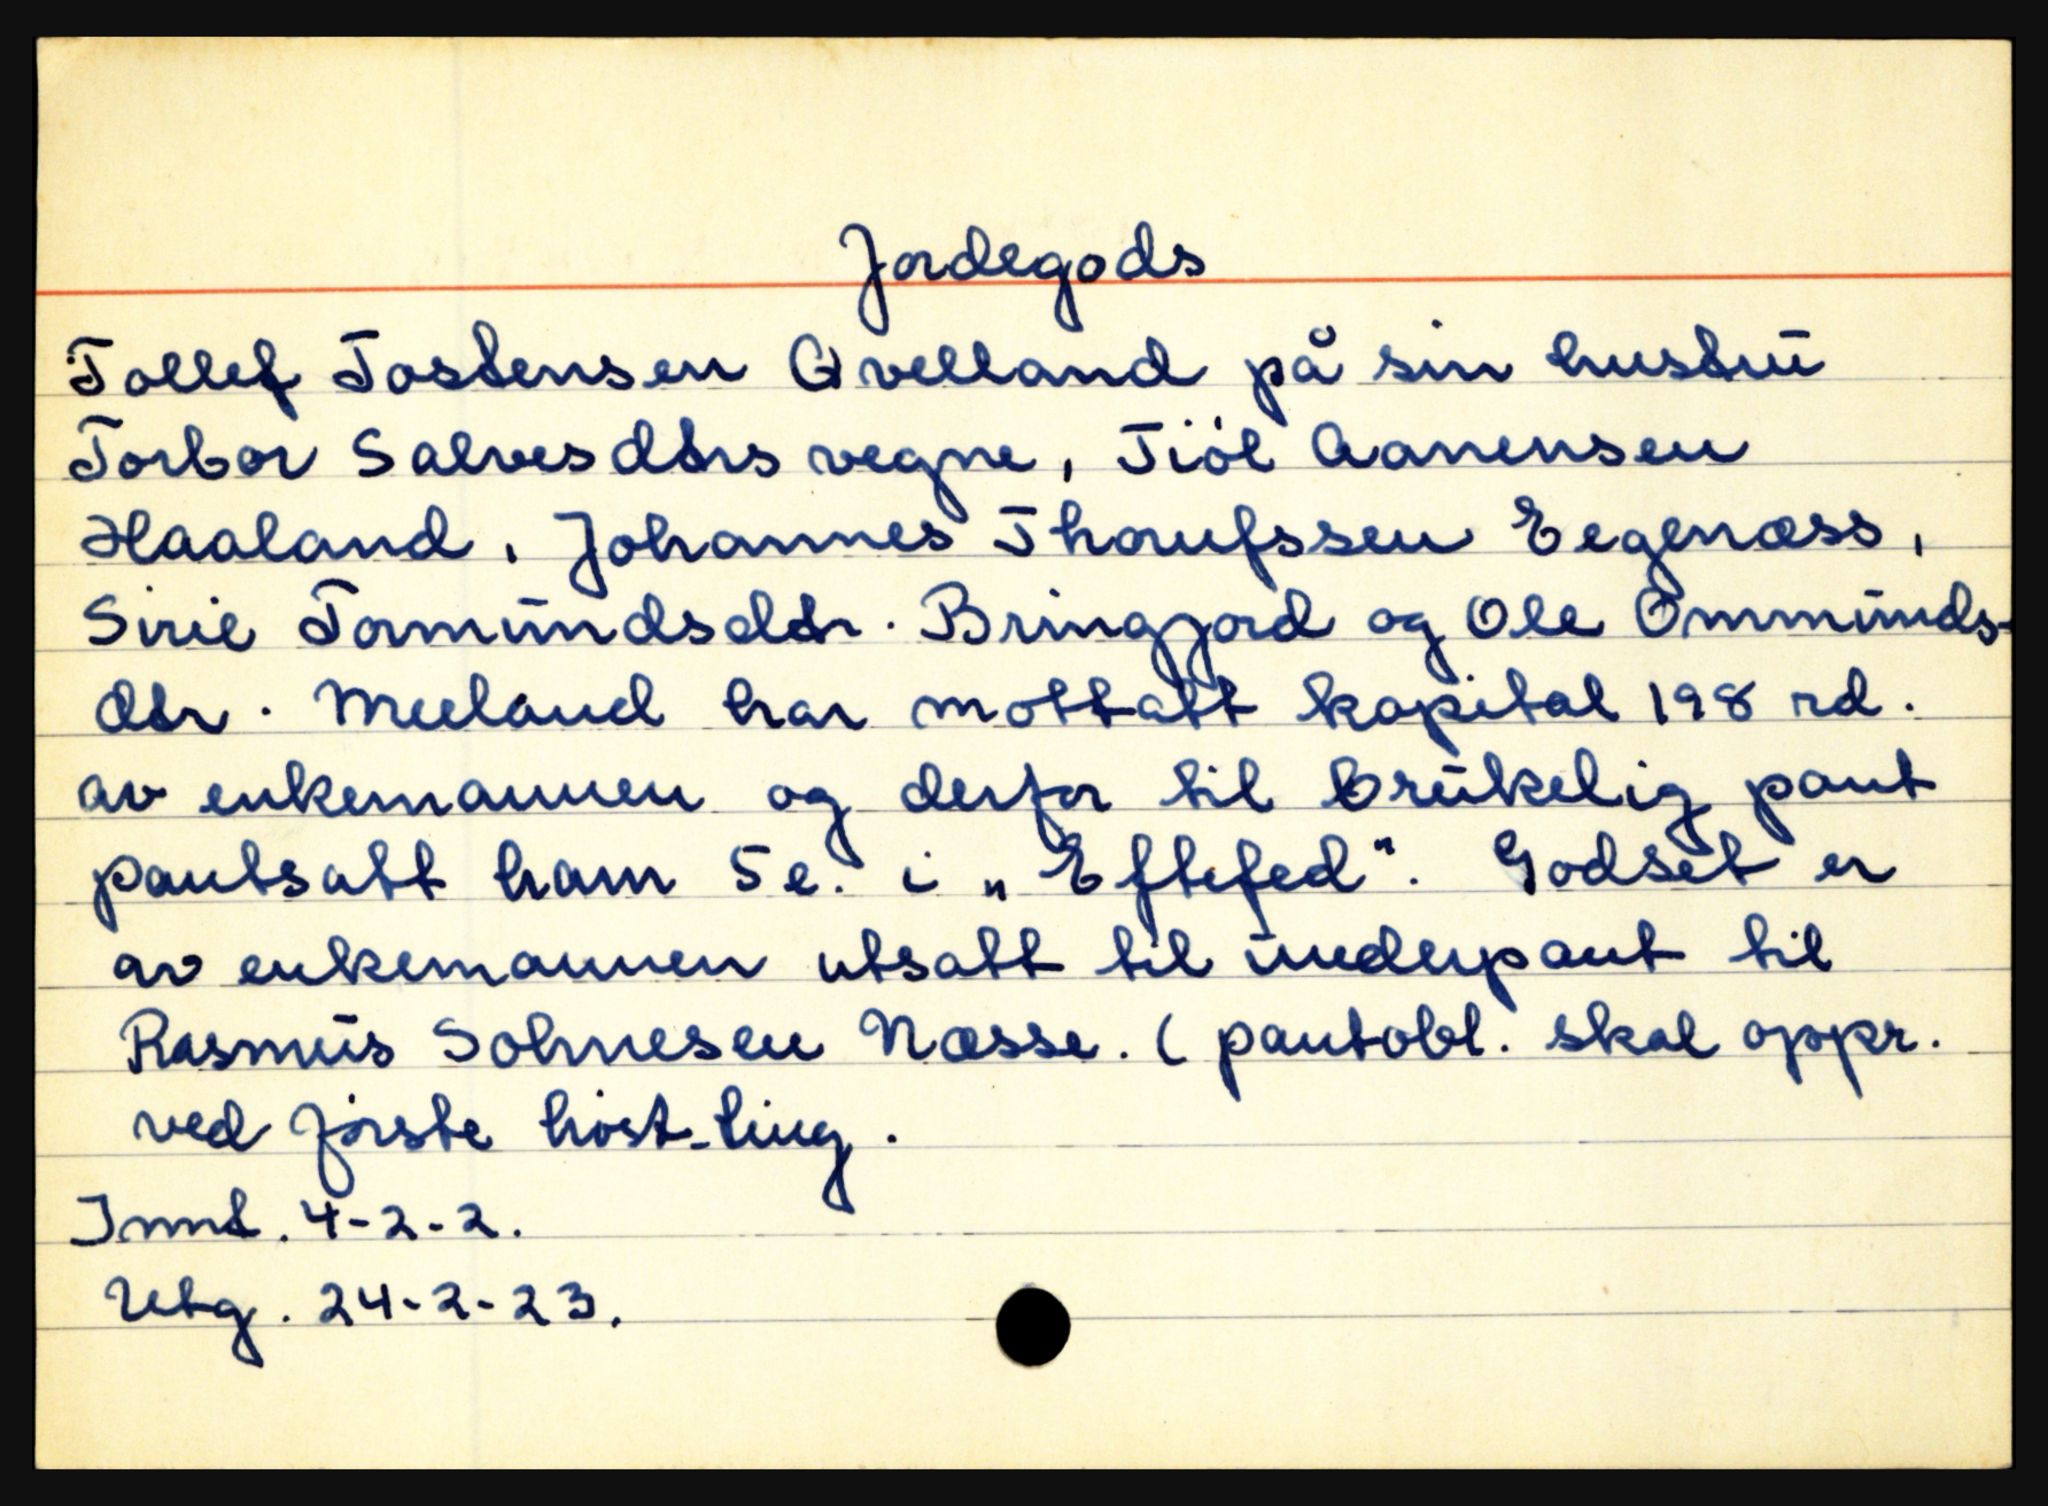 Jordegods
Tollef Tostensen Qvelland på sin hustru
Torbor Salvesdtrs vegne, Tiøl Aanensen
Haaland, Johannes Thorufssen Eegenæss,
Sirie Tormundsdtr. Bringjord og Ole Ommunds-
dtr. Meeland har mottatt kapital 198 rd.
av enkemannen og derfor til brukelig pant
pantsatt ham 5 e. i „Eftefed". Godset er
av enkemannen utsatt til underpant til
Rasmus Solmesen Næsse. (pantobl. skal oppr.
ved første høst-ting.
Innt. 4-2-2.
Utg. 24-2-23.